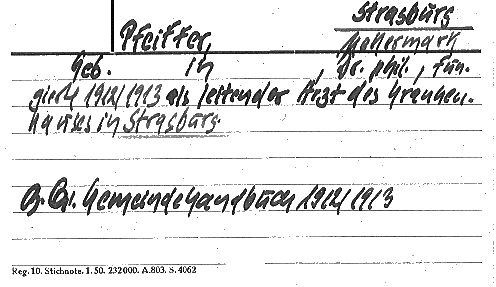 Strasburg
Pfeiffer, Uckermark
Geb. in , Dr. phil., fun-
giert 1912/1913 als leitender Arzt des Kranken-
hauses in Strasburg.
Gemeindehandbuch 1912/1913
Reg. 10. Stichnote. 1. 50. 232000. A.803. S. 4062